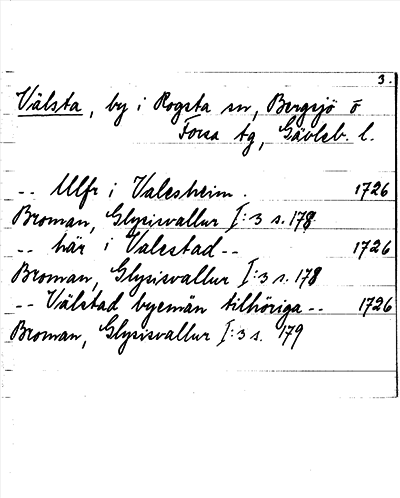 3.
Välsta, by i Rogsta sn, Bergsjö o
Forsa tg, Gävleb. l.
-- Ulfr i Valesheim. 1726
Broman, Glysisvallur I:3 s. 178
-- här i Valestad -- 1726
Broman, Glysisvallur I:3 s. 178
-- Välstad byemän tilhöriga -- 1726
Broman, Glysisvallur I:3 s. 179